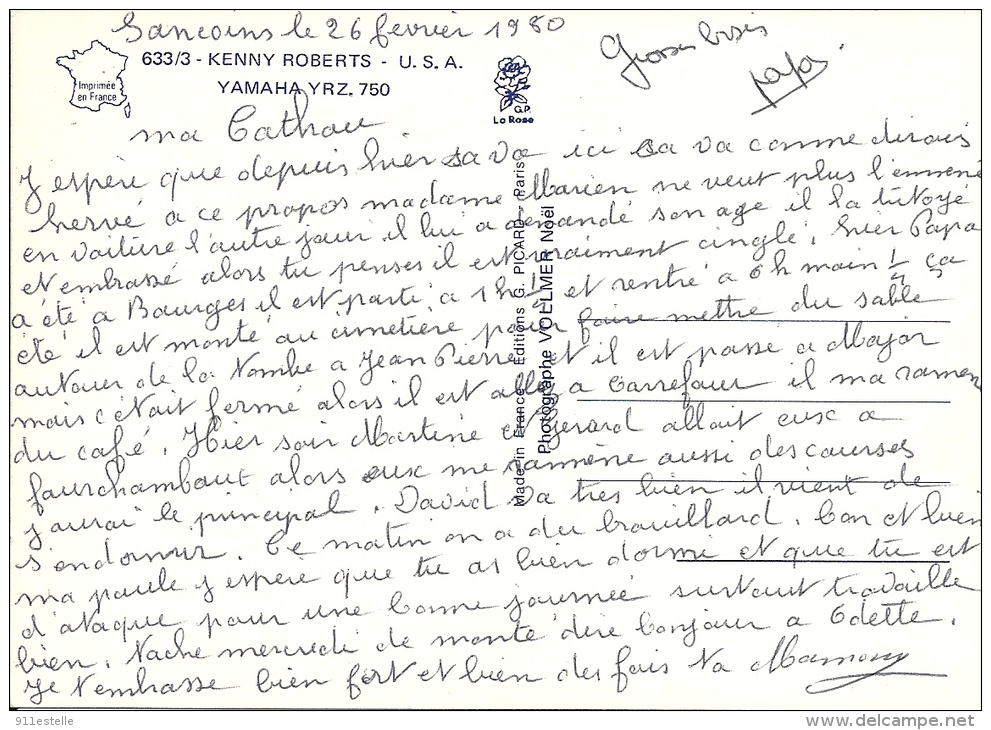 Sancoins le 26 fevrier 1980
Grosses bises
papa
Imprimée
en France
633/3 - KENNY ROBERTS - U. S. A.
YAMAHA YRZ. 750
G.P.
La Rose
ma Cathou
J espère que depuis hier sa va ici sa va comme dirais
hervé a ce propos madame Marien ne veut plus l'emmené
en voiture l'autre jour il lui a demandé son age il la tutoyé
et embrassé alors tu penses il est vraiment cinglé, hier Papa
a été a Bourges il est parti a 1h ½ et rentré a 6h moin ¼ ça
été il est monté au cimetière pour faire mettre du sable
autour de la tombe a Jean Pierre et il est passé a Major
mais c'était fermé alors il est allé a Carrefour il ma ramen
du café. Hier soir Martine et Gerard allait eux a
fourchambaut alors eux me rammène aussi des courses
j aurai le principal. David va tres bien il vient de
s'endormir. Ce matin on a du brouillard. Bon et bien
ma poule j espère que tu as bien dormi et que tu est
d'ataque pour une bonne journée surtout travaille
bien. Tache mercredi de monté dire bonjour a Odette.
Je t'embrasse bien fort et bien des fois ta Mamony
Made in France - Editions G. PICARD - Paris
Photographe VOLLMER Noël
911estelle
www.delcampe.net